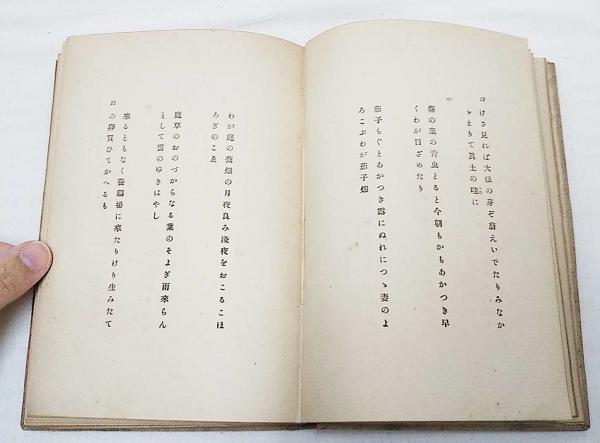 けさ見れば大根の芽ぞ萠えいでたりみなか
たまりて眞土の畦に
葉の青虫とると今朝もかもあかつき早
くわが目ざめたり
茄子もぐとあかつき露にぬれにつゝ妻のよ
ろこぶわが茄子畑
わが庭の畑の月夜良み淺夜をおこるこほ
ろぎのこゑ
庭草のおのづからなる葉のそよぎ雨來らん
として雲のゆきはやし
來るともなく養鷄場に來たりけり生みたて
の卵買ひてかへるも